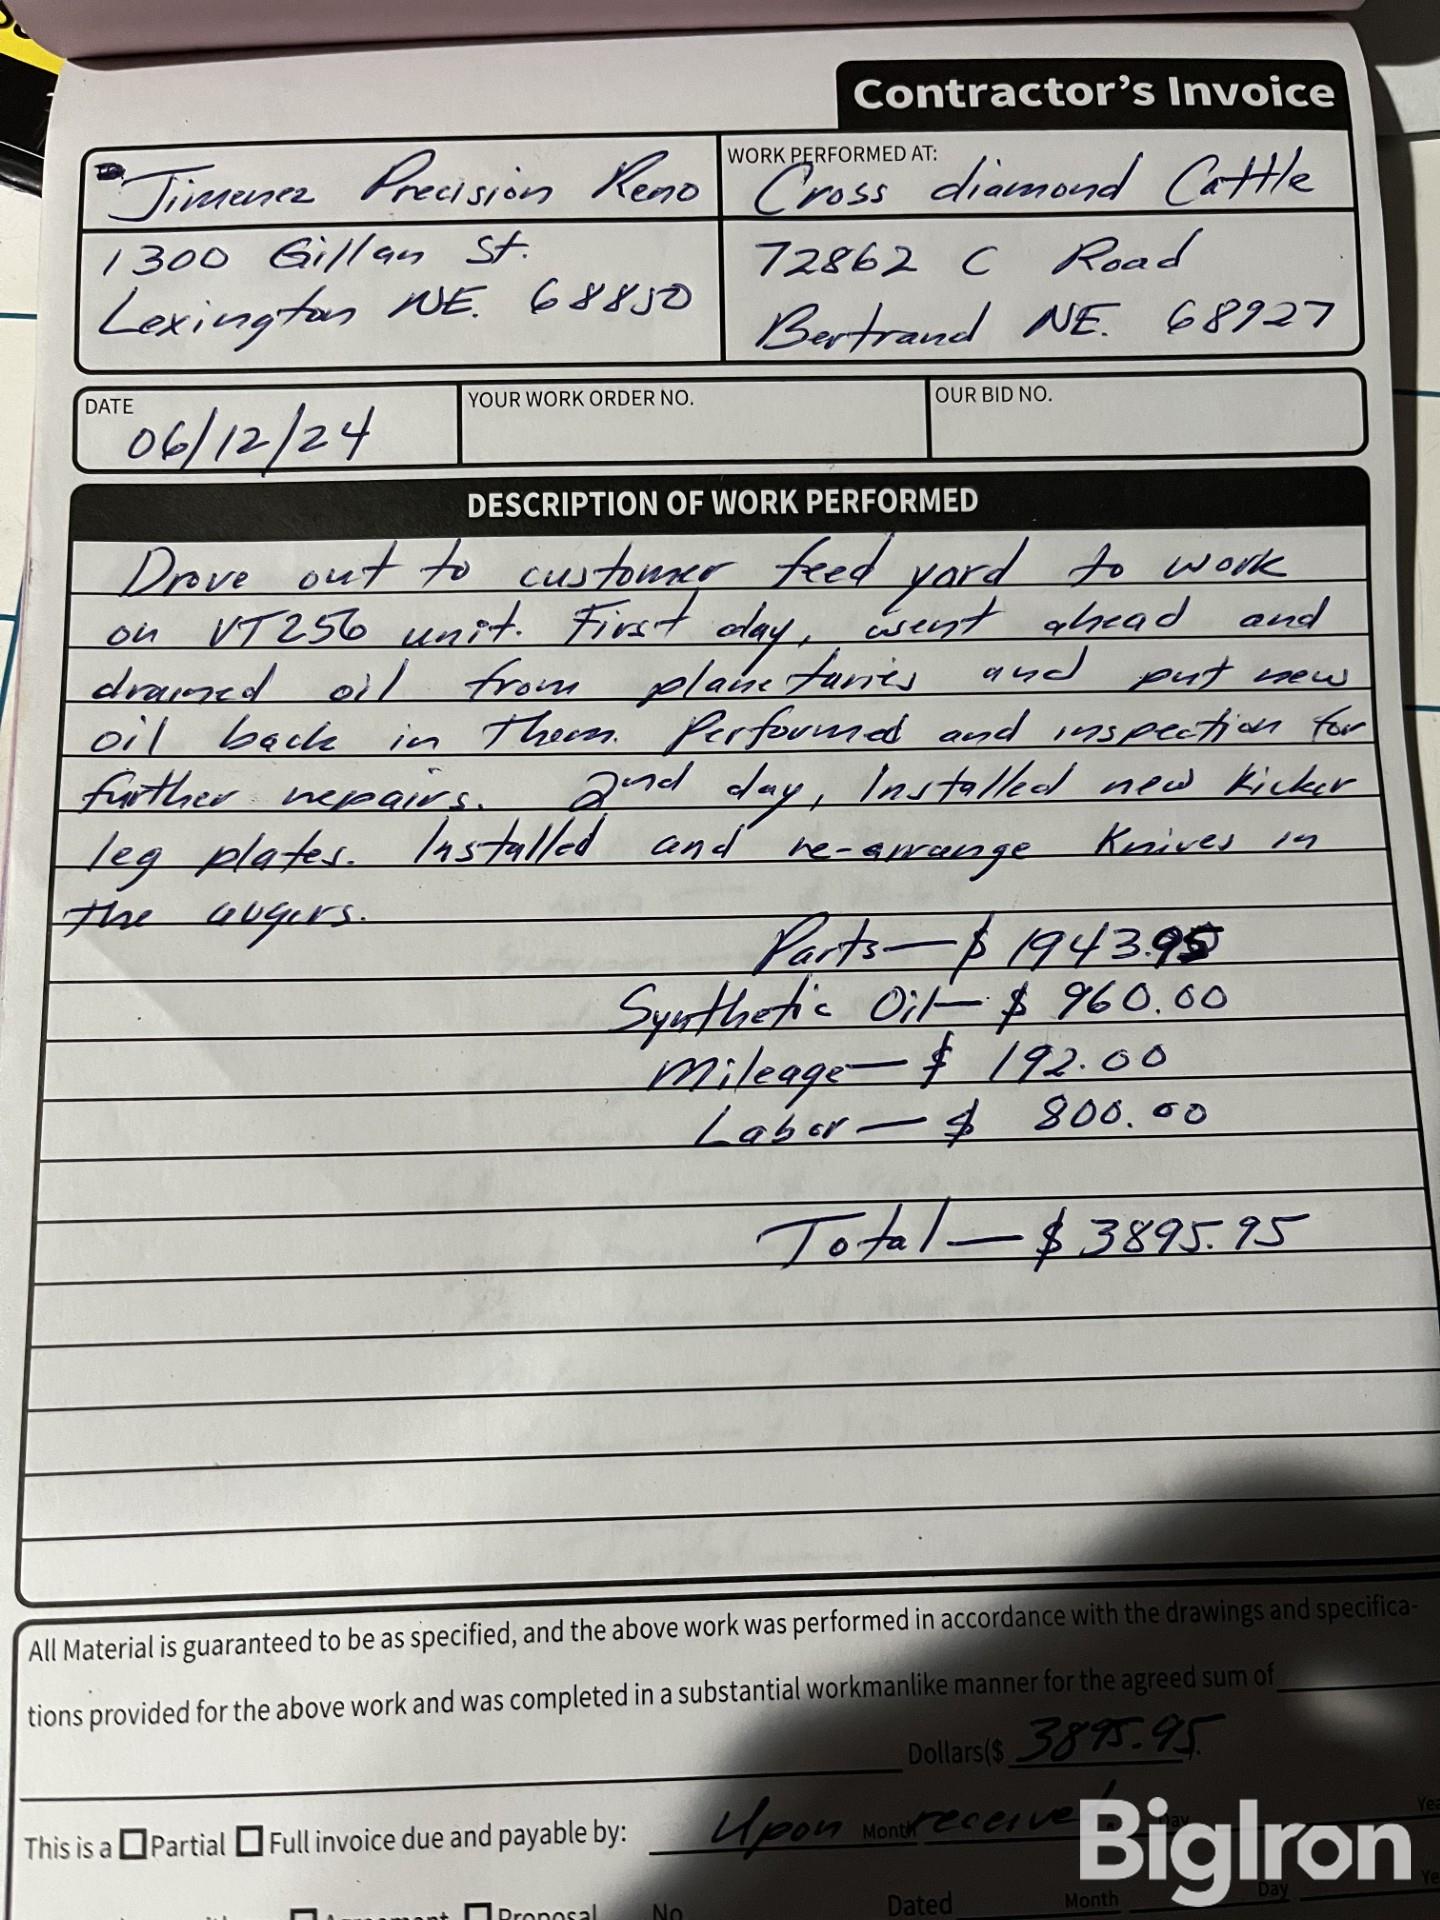 Contractor's Invoice
Jimenez Precision Reno
WORK PERFORMED AT:
Cross diamond Cattle
1300 Gillan St.
Lexington NE. 68850
72862 C Road
Bertrand NE. 68927
DATE
06/12/24
YOUR WORK ORDER NO.
OUR BID NO.
DESCRIPTION OF WORK PERFORMED
Drove out to customer feed yard to work
on VT256 unit. First day, went ahead and
drained oil from planetaries and put new
oil back in them. Performed and inspection for
further repairs. 2nd day, Installed new kicker
leg plates. Installed and re-arrange Knives in
the augers.
Parts—$ 1943.95
Synthetic Oil—$ 960.00
Mileage—$ 192.00
Labor—$ 800.00
Total—$3895.95
All Material is guaranteed to be as specified, and the above work was performed in accordance with the drawings and specifica-
tions provided for the above work and was completed in a substantial workmanlike manner for the agreed sum of
Dollars($ 3895.95
This is a Partial Full invoice due and payable by: Upon Month Day
BigIron
Proposal No. Dated Month Day